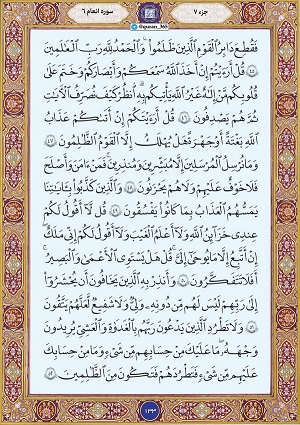 سوره انعام ٦
جزء ٧
@quran_365
فَقُطِعَ دَابِرُ ٱلْقَوْمِ ٱلَّذِينَ ظَلَمُوا۟ وَٱلْحَمْدُ لِلَّهِ رَبِّ ٱلْعَٰلَمِينَ
﴿٤٥﴾ قُلْ أَرَءَيْتُمْ إِنْ أَخَذَ ٱللَّهُ سَمْعَكُمْ وَأَبْصَٰرَكُمْ وَخَتَمَ عَلَىٰ
قُلُوبِكُم مَّنْ إِلَٰهٌ غَيْرُ ٱللَّهِ يَأْتِيكُم بِهِ ٱنظُرْ كَيْفَ نُصَرِّفُ ٱلْءَايَٰتِ
ثُمَّ هُمْ يَصْدِفُونَ ﴿٤٦﴾ قُلْ أَرَءَيْتَكُمْ إِنْ أَتَىٰكُمْ عَذَابُ
ٱللَّهِ بَغْتَةً أَوْ جَهْرَةً هَلْ يُهْلَكُ إِلَّا ٱلْقَوْمُ ٱلظَّٰلِمُونَ ﴿٤٧﴾
وَمَا نُرْسِلُ ٱلْمُرْسَلِينَ إِلَّا مُبَشِّرِينَ وَمُنذِرِينَ فَمَنْ ءَامَنَ وَأَصْلَحَ
فَلَا خَوْفٌ عَلَيْهِمْ وَلَا هُمْ يَحْزَنُونَ ﴿٤٨﴾ وَٱلَّذِينَ كَذَّبُوا۟ بِـَٔايَٰتِنَا
يَمَسُّهُمُ ٱلْعَذَابُ بِمَا كَانُوا۟ يَفْسُقُونَ ﴿٤٩﴾ قُل لَّآ أَقُولُ لَكُمْ
عِندِى خَزَآئِنُ ٱللَّهِ وَلَآ أَعْلَمُ ٱلْغَيْبَ وَلَآ أَقُولُ لَكُمْ إِنِّى مَلَكٌ
إِنْ أَتَّبِعُ إِلَّا مَا يُوحَىٰٓ إِلَىَّ قُلْ هَلْ يَسْتَوِى ٱلْأَعْمَىٰ وَٱلْبَصِيرُ
أَفَلَا تَتَفَكَّرُونَ ﴿٥٠﴾ وَأَنذِرْ بِهِ ٱلَّذِينَ يَخَافُونَ أَن يُحْشَرُوٓا۟
إِلَىٰ رَبِّهِمْ لَيْسَ لَهُم مِّن دُونِهِۦ وَلِىٌّ وَلَا شَفِيعٌ لَّعَلَّهُمْ يَتَّقُونَ
﴿٥١﴾ وَلَا تَطْرُدِ ٱلَّذِينَ يَدْعُونَ رَبَّهُم بِٱلْغَدَوٰةِ وَٱلْعَشِىِّ يُرِيدُونَ
وَجْهَهُۥ مَا عَلَيْكَ مِنْ حِسَابِهِم مِّن شَىْءٍ وَمَا مِنْ حِسَابِكَ
عَلَيْهِم مِّن شَىْءٍ فَتَطْرُدَهُمْ فَتَكُونَ مِنَ ٱلظَّٰلِمِينَ ﴿٥٢﴾
١٣٣